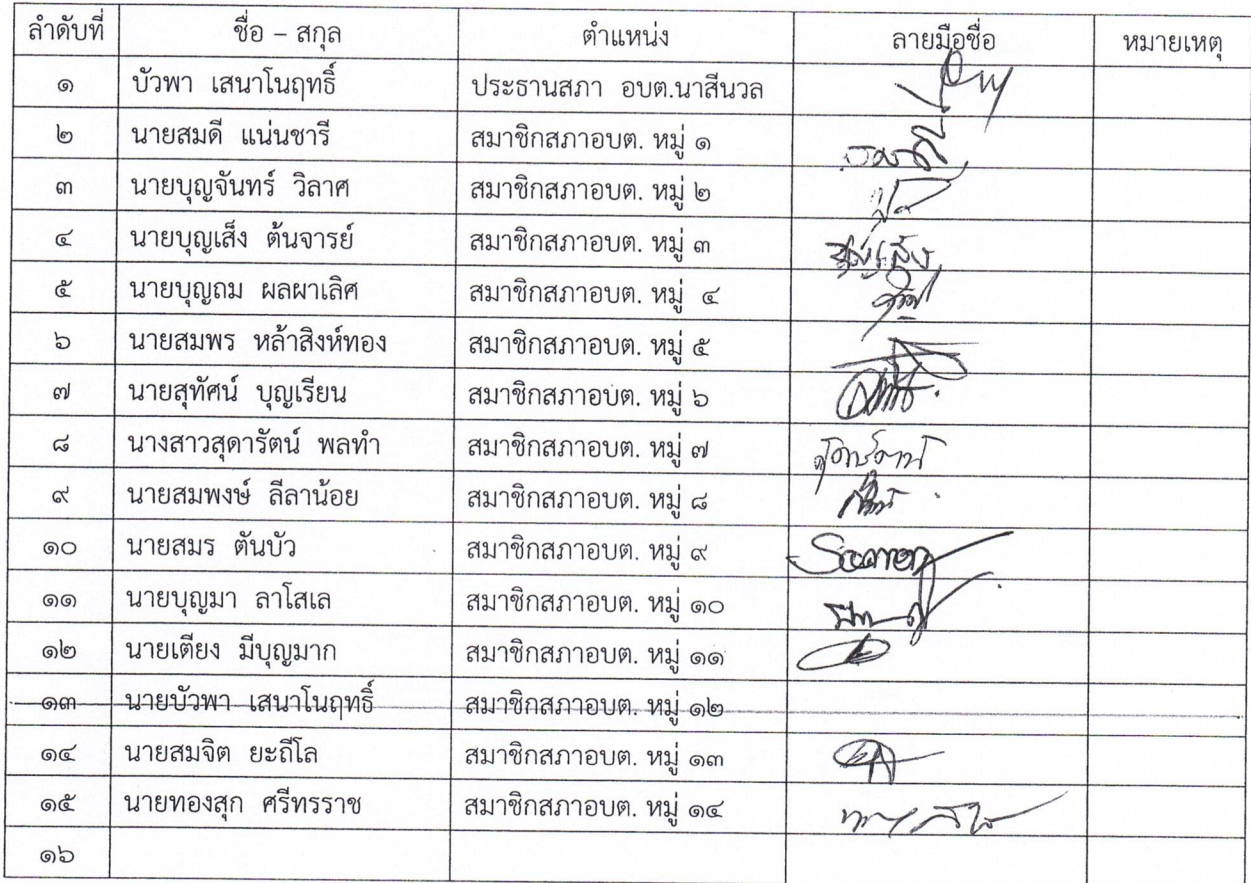 ลำดับที่ ชื่อ – สกุล ตำแหน่ง ลายมือชื่อ หมายเหตุ
๑ บัวพา เสนาโนฤทธิ์ ประธานสภา อบต.นาสีนวล
๒ นายสมดี แน่นชารี สมาชิกสภาอบต. หมู่ ๑
๓ นายบุญจันทร์ วิลาศ สมาชิกสภาอบต. หมู่ ๒
๔ นายบุญเส็ง ต้นจารย์ สมาชิกสภาอบต. หมู่ ๓ บุญเส็ง
๕ นายบุญถม ผลผาเลิศ สมาชิกสภาอบต. หมู่ ๔
๖ นายสมพร หล้าสิงห์ทอง สมาชิกสภาอบต. หมู่ ๕
๗ นายสุทัศน์ บุญเรียน สมาชิกสภาอบต. หมู่ ๖
๘ นางสาวสุดารัตน์ พลทำ สมาชิกสภาอบต. หมู่ ๗ สุดารัตน์
๙ นายสมพงษ์ ลีลาน้อย สมาชิกสภาอบต. หมู่ ๘
๑๐ นายสมร ตันบัว สมาชิกสภาอบต. หมู่ ๙
๑๑ นายบุญมา ลาโสเล สมาชิกสภาอบต. หมู่ ๑๐
๑๒ นายเตียง มีบุญมาก สมาชิกสภาอบต. หมู่ ๑๑
๑๓ นายบัวพา เสนาโนฤทธิ์ สมาชิกสภาอบต. หมู่ ๑๒
๑๔ นายสมจิต ยะถีโล สมาชิกสภาอบต. หมู่ ๑๓
๑๕ นายทองสุก ศรีทรราช สมาชิกสภาอบต. หมู่ ๑๔
๑๖